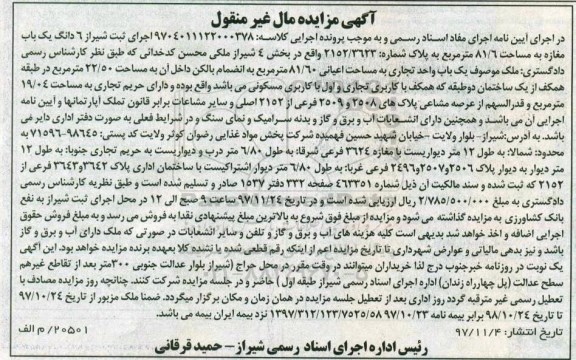 آگهی مزایده مال غیر منقول
در اجرای آیین نامه اجرای مفاد اسناد رسمی و به موجب پرونده اجرایی کلاسه: ۹۷۰۴۰۱۱۱۲۲۰۰۰۳۷۸ اجرای ثبت شیراز ۶ دانگ یک باب
مغازه به مساحت ۸۱/۶ مترمربع به پلاک شماره: ۲۱۵۲/۳۶۲۳ واقع در بخش ۴ شیراز ملکی محسن کدخدائی که طبق نظر کارشناس رسمی
دادگستری: ملک موصوف یک باب واحد تجاری به مساحت اعیانی ۸۱/۶۰ مترمربع به انضمام بالکن داخل آن به مساحت ۲۲/۵۰ مترمربع در طبقه
همکف از یک ساختمان دوطبقه که همکف با کاربری تجاری و اول با کاربری مسکونی می باشد واقع بوده و دارای حریم تجاری به مساحت ۱۹/۰۴
مترمربع و قدرالسهم از عرصه مشاعی پلاک های ۲۵۰۸ و ۲۵۰۹ فرعی از ۲۱۵۲ اصلی و سایر مشاعات برابر قانون تملک آپارتمانها و آیین نامه
اجرایی آن می باشد و همچنین دارای انشعابات آب و برق و گاز و بدنه سرامیک و نمای سنگ و در شرایط فعلی به صورت دفتر اداری دایر می
باشد. به آدرس: شیراز- بلوار ولایت -خیابان شهید حسین فهمیده شرکت پخش مواد غذایی رضوان کوثر ولایت کد پستی: ۹۸۶۴۵-۷۱۵۹۶ به
حدود: شمالا: به طول ۱۲ متر دیواریست با مغازه ۳۶۲۴ فرعی شرقا: به طول ۶/۸۰ متر درب و دیواریست به حریم تجاری جنوبا: به طول ۱۲
متر دیوار به دیوار پلاک ۲۵۰۶و۲۵۰۷و۲۴۹۶ فرعی غربا: به طول ۶/۸۰ متر دیوار اشتراکیست با ساختمان اداری پلاک ۳۶۴۲و۳۶۴۳ فرعی از
۲۱۵۲ که ثبت شده و سند مالکیت آن ذیل شماره ۴۶۳۳۵۱ صفحه ۳۳۲ دفتر ۱۵۳۷ صادر و تسلیم شده است و طبق نظریه کارشناس رسمی
دادگستری به مبلغ ۲/۷۸۵/۵۰۰/۰۰۰ ریال ارزیابی شده است و در تاریخ ۹۷/۱۰/۲۴ ساعت ۹ صبح الی ۱۲ در محل اجرای ثبت شیراز به نفع
بانک کشاورزی به مزایده گذاشته می شود و مزایده از مبلغ فوق شروع به بالاترین مبلغ پیشنهادی نقدا به فروش می رسد و به مبلغ فروش حقوق
اجرایی اضافه و اخذ خواهد شد بدیهی است کلیه هزینه های آب و برق و گاز و تلفن و سایر انشعابات در صورتی که ملک دارای آب و برق و گاز
باشد و نیز بدهی مالیاتی و عوارض شهرداری تا تاریخ مزایده اعم از اینکه رقم قطعی شده یا نشده کلا بعهده برنده مزایده خواهد بود. این آگهی
یک نوبت در روزنامه خبرجنوب درج لذا خریداران میتوانند در وقت مقرر به محل حراج (شیراز بلوار عدالت جنوبی ۳۰۰متر بعد از تقاطع غیرهم
سطح عدالت (پل چهارراه زندان) اداره اجرای اسناد رسمی شیراز طبقه اول) حاضر و در جلسه مزایده شرکت کنند. چنانچه روز مزایده مصادف با
تعطیل رسمی غیر مترقبه گردد روز اداری بعد از تعطیل جلسه مزایده در همان زمان و مکان برگزار میگردد. ضمنا ملک مزبور از تاریخ ۹۷/۱۰/۲۴
تا تاریخ ۹۸/۱۰/۲۴ برابر بیمه نامه ۱۳۹۷/۳۱۲/۱۲۳/۷۵۲۰/۵۸ ۹۷/۱۰/۲۳ نزد بیمه ایران بیمه می باشد.
تاریخ انتشار: ۹۷/۱۱/۴ ۲۰۵۰۱/ م الف
رئیس اداره اجرای اسناد رسمی شیراز – حمید قرقانی